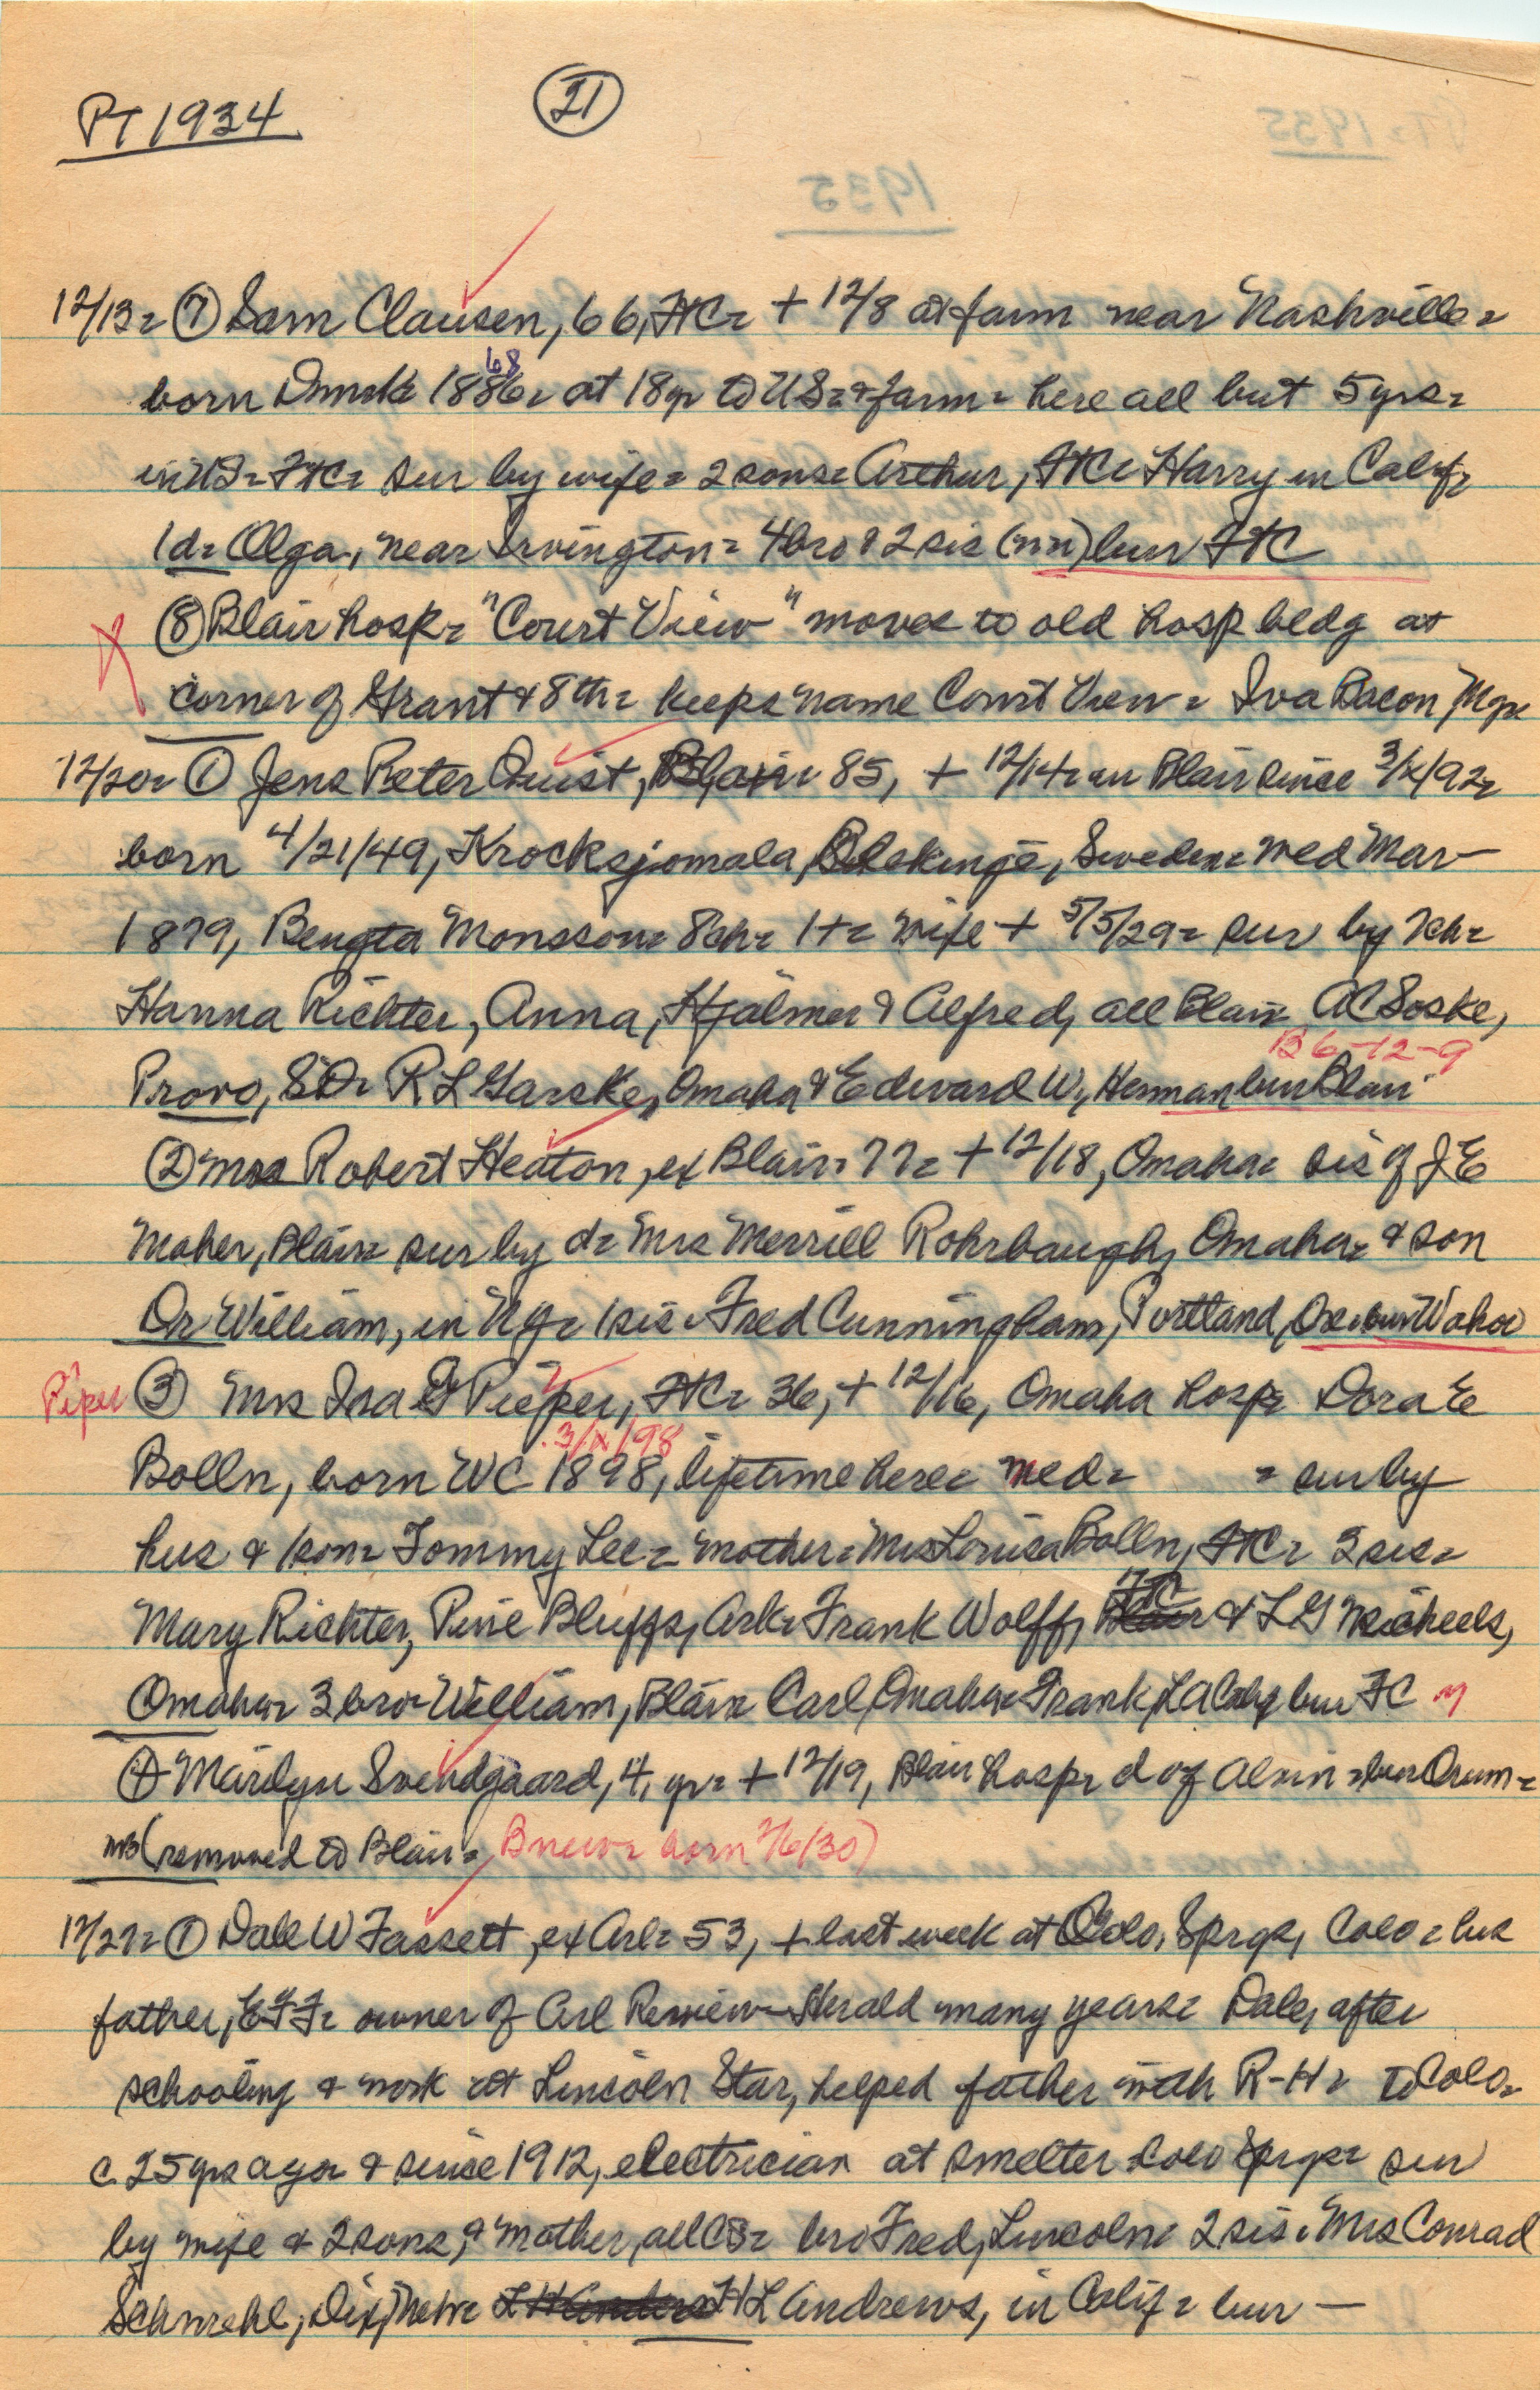 PT 1934
21
12/13= ⑦ Sam Clausen, 66, FtC= + 12/8 at farm near Nashville=
68
born Dmrk 1886= at 18yr to US= & farm= here all but 5yrs=
in US= FtC= sur by wife= 2 sons= Arthur, FtC= Harry in Calif=
1d= Olga, near Irvington= 4bro & 2sis (nn) bur FtC
⑧ Blair hosp= "Court View" moves to old hosp bldg at
corner of Grant & 8th= keeps name Court View= Iva Bacon, Mgr
12/20= ① Jens Peter Quist, Blair= 85, + 12/14= in Blair since 3/x/92=
born 4/21/49, Krocksjomala, Blekinge, Sweden= wed Mar
1879, Bengta Monsson= 8ch= 1+= wife + 5/5/29= sur by 7ch=
Hanna Richter, Anna, Hjalmer & Alfred, all Blair= AC Soske,
B 6-12-9
Provo, SD= R L Garske, Omaha & Edward W, Herman bur Blair
② Mrs Robert Heaton, ex Blair= 77= + 12/18, Omaha= sis of J E
Maher, Blair= sur by d= Mrs Merrill Rohrbaugh, Omaha= & son
Dr William, in NY= 1sis= Fred Cunningham, Portland, Ore= bur Wahoo
Piper ③ Mrs Ira G Pieper, FtC= 36, + 12/16, Omaha hosp= Dora E
3/x/98
Bolln, born WC 1898, lifetime here= wed= = sur by
hus & 1son= Tommy Lee= mother= Mrs Louisa Bolln, FtC= 3 sis=
FC
Mary Richter, Pine Bluffs, Ark= Frank Wolff, Blair & L G Micheels,
Omaha= 3 bro= William, Blair= Carl, Omaha= Frank, LA Calif bur FC
④ Marilyn Svendgaard, 4, yr= + 12/19, Blair hosp= d of Alvin= bur Orum=
(removed to Blair= B new= born 2/6/30)
12/27= ① Dale W Fassett, ex Arl= 53, + last week at Colo, Sprgs, Colo= his
father, E F F= owner of Arl Review-Herald many years= Dale, after
schooling & work at Lincoln Star, helped father with R-H= to Colo=
c 25yrs ago= & since 1912, electrician at smelter Colo Sprgs= sur
by wife & 2 sons, & mother, all CS= bro Fred, Lincoln= 2 sis= Mrs Conrad
Schwehl, Dix, Nebr= H L Andrews, in Calif= bur —